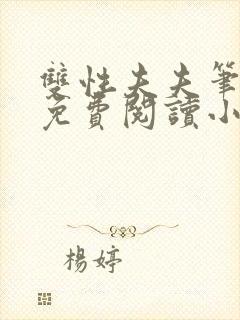 雙性夫夫筆
免費閱讀小
楊婷